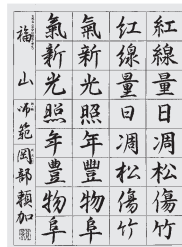 紅線量日凋松傷竹
紅線量日凋松傷竹
氣新光照年豐物阜
氣新光照年豐物阜
福山師範岡部賴加